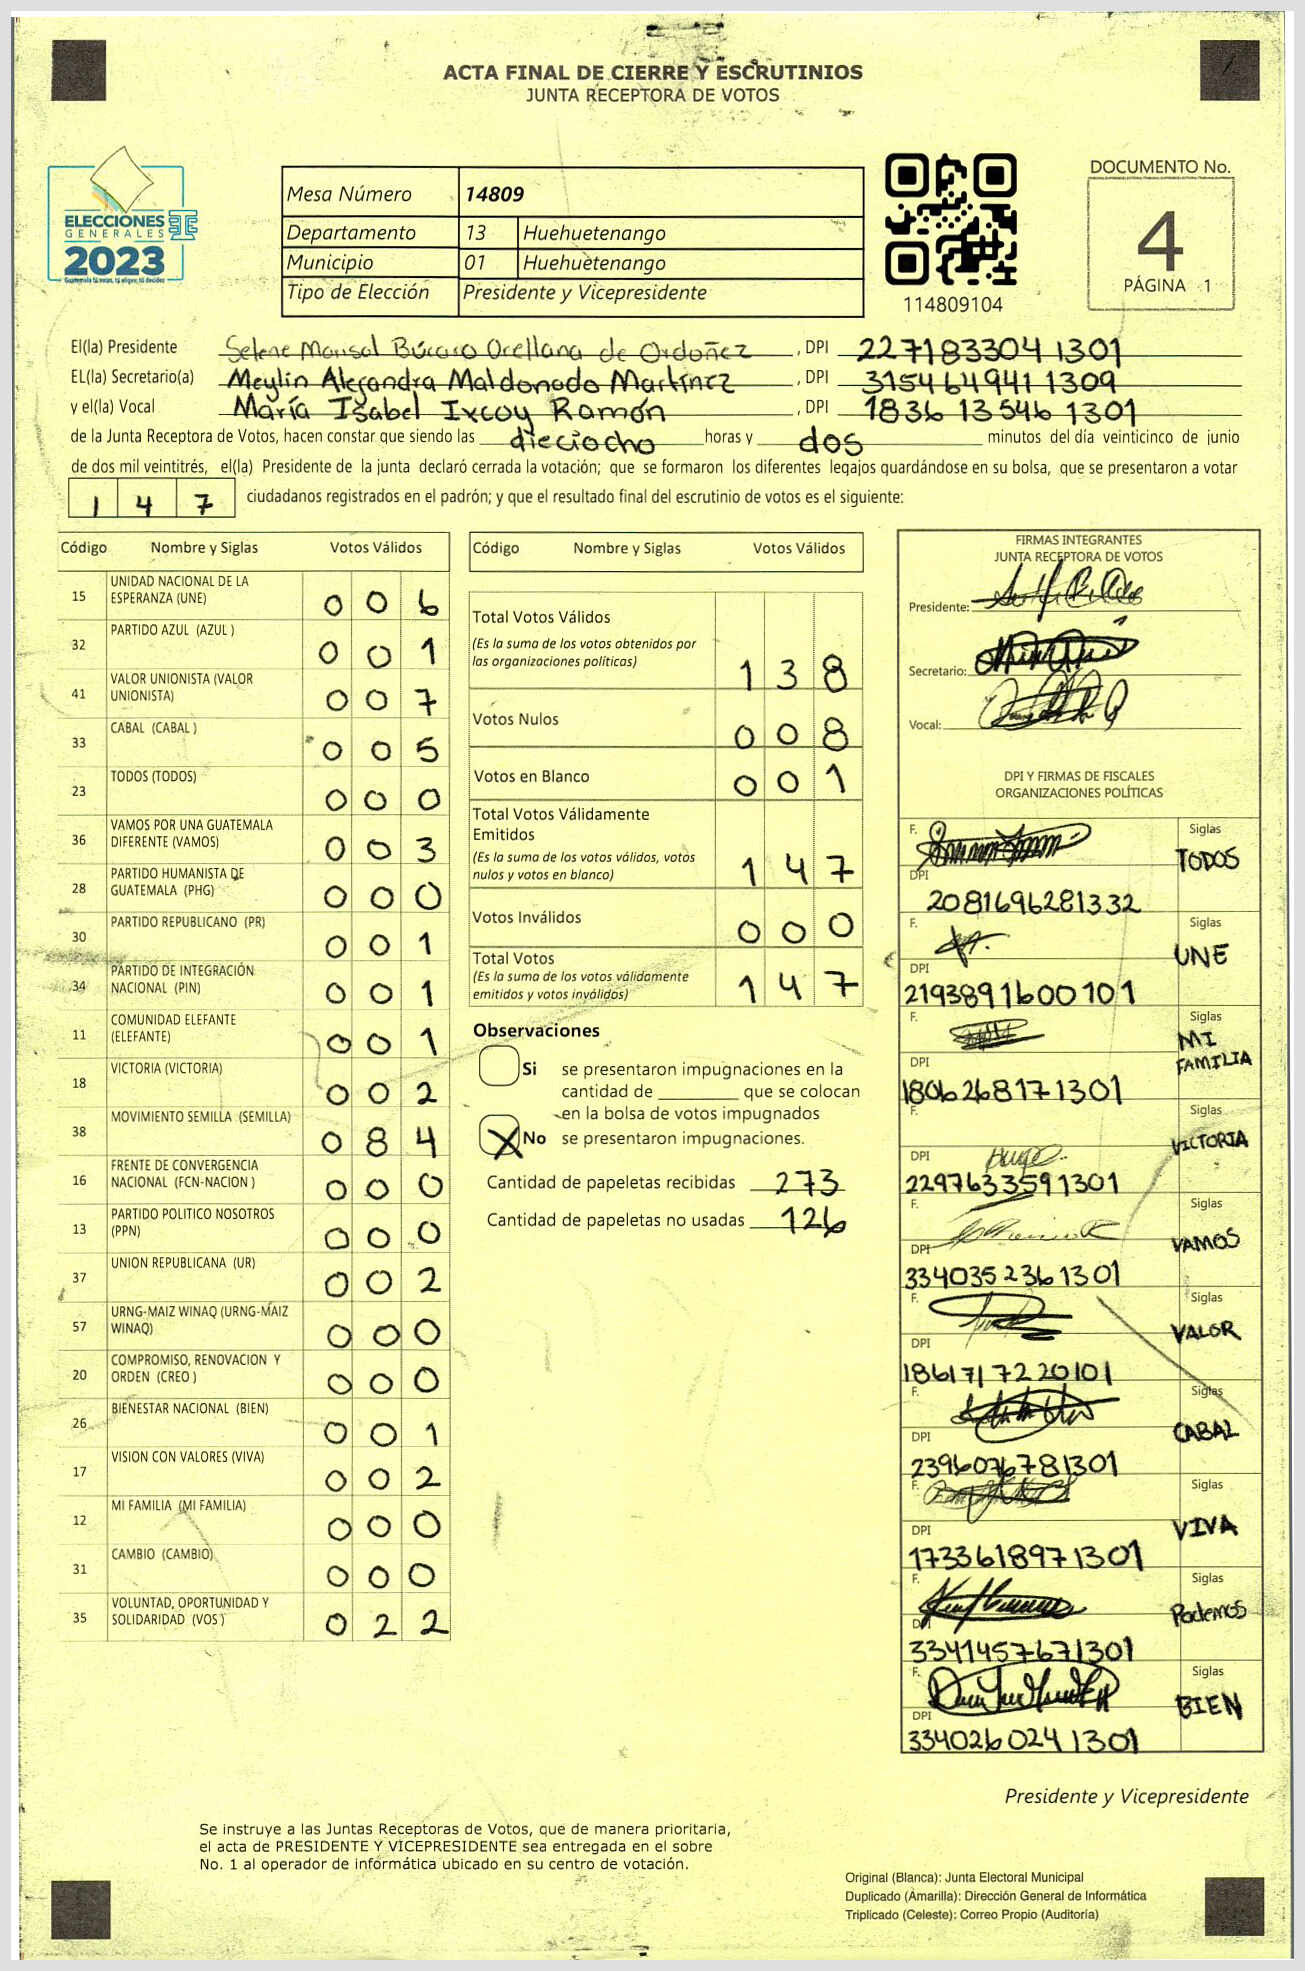 ACTA FINAL DE CIERRE Y ESCRUTINIOS
JUNTA RECEPTORA DE VOTOS
ELECCIONES
GENERALES
2023
Guatemala tú eres, tú eliges, tú decides
Mesa Número 14809
Departamento 13 Huehuetenango
Municipio 01 Huehuetenango
Tipo de Elección Presidente y Vicepresidente
114809104
DOCUMENTO No.
4
PÁGINA 1
El(la) Presidente Selene Marisol Búcaro Orellana de Ordoñez, DPI 2271833041301
EL(la) Secretario(a) Meylin Alejandra Maldonado Martínez, DPI 3154649411309
y el(la) Vocal María Isabel Ixcoy Ramón, DPI 1836135461301
de la Junta Receptora de Votos, hacen constar que siendo las dieciocho horas y dos minutos del día veinticinco de junio
de dos mil veintitrés, el(la) Presidente de la junta declaró cerrada la votación; que se formaron los diferentes legajos guardándose en su bolsa, que se presentaron a votar
147 ciudadanos registrados en el padrón; y que el resultado final del escrutinio de votos es el siguiente:
Código Nombre y Siglas Votos Válidos
15 UNIDAD NACIONAL DE LA ESPERANZA (UNE) 006
32 PARTIDO AZUL (AZUL ) 001
41 VALOR UNIONISTA (VALOR UNIONISTA) 007
33 CABAL (CABAL ) 005
23 TODOS (TODOS) 000
36 VAMOS POR UNA GUATEMALA DIFERENTE (VAMOS) 003
28 PARTIDO HUMANISTA DE GUATEMALA (PHG) 000
30 PARTIDO REPUBLICANO (PR) 001
34 PARTIDO DE INTEGRACIÓN NACIONAL (PIN) 001
11 COMUNIDAD ELEFANTE (ELEFANTE) 001
18 VICTORIA (VICTORIA) 002
38 MOVIMIENTO SEMILLA (SEMILLA) 084
16 FRENTE DE CONVERGENCIA NACIONAL (FCN-NACION ) 000
13 PARTIDO POLITICO NOSOTROS (PPN) 000
37 UNION REPUBLICANA (UR) 002
57 URNG-MAIZ WINAQ (URNG-MAIZ WINAQ) 000
20 COMPROMISO, RENOVACION Y ORDEN (CREO ) 000
26 BIENESTAR NACIONAL (BIEN) 001
17 VISION CON VALORES (VIVA) 002
12 MI FAMILIA (MI FAMILIA) 000
31 CAMBIO (CAMBIO) 000
35 VOLUNTAD, OPORTUNIDAD Y SOLIDARIDAD (VOS ) 022
Código Nombre y Siglas Votos Válidos
Total Votos Válidos
(Es la suma de los votos obtenidos por
las organizaciones políticas) 138
Votos Nulos 008
Votos en Blanco 001
Total Votos Válidamente
Emitidos
(Es la suma de los votos válidos, votos
nulos y votos en blanco) 147
Votos Inválidos 000
Total Votos
(Es la suma de los votos válidamente
emitidos y votos inválidos) 147
Observaciones
Si se presentaron impugnaciones en la
cantidad de ________ que se colocan
en la bolsa de votos impugnados
X No se presentaron impugnaciones.
Cantidad de papeletas recibidas 273
Cantidad de papeletas no usadas 126
FIRMAS INTEGRANTES
JUNTA RECEPTORA DE VOTOS
Presidente:
Secretario:
Vocal:
DPI Y FIRMAS DE FISCALES
ORGANIZACIONES POLÍTICAS
F. Siglas
TODOS
DPI
2081696281332
F. Siglas
UNE
DPI
2193891600101
F. Siglas
MI
FAMILIA
DPI
1806268171301
F. Siglas
VICTORIA
DPI
2297633591301
F. Siglas
VAMOS
DPI
3340352361301
F. Siglas
VALOR
DPI
1861717220101
F. Siglas
CABAL
DPI
2396076781301
F. Siglas
VIVA
DPI
1733618971301
F. Siglas
Podemos
DPI
3341457671301
F. Siglas
BIEN
DPI
3340260241301
Presidente y Vicepresidente
Se instruye a las Juntas Receptoras de Votos, que de manera prioritaria,
el acta de PRESIDENTE Y VICEPRESIDENTE sea entregada en el sobre
No. 1 al operador de informática ubicado en su centro de votación.
Original (Blanca): Junta Electoral Municipal
Duplicado (Amarilla): Dirección General de Informática
Triplicado (Celeste): Correo Propio (Auditoría)